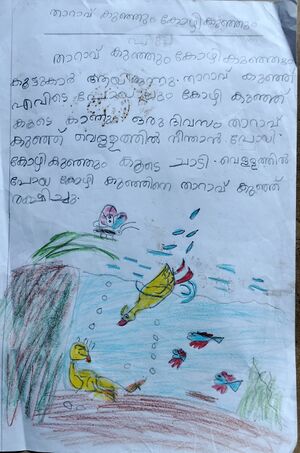 താറാവ് കുഞ്ഞും കോഴികുഞ്ഞും
താറാവ് കുഞ്ഞും കോഴി കുഞ്ഞും
കൂട്ടുകാർ ആയിരുന്നു. താറാവ് കുഞ്ഞ്
എവിടെ പോയാലും കോഴി കുഞ്ഞ്
കൂടെ കാണും ഒരു ദിവസം താറാവ്
കുഞ്ഞ് വെള്ളത്തിൽ നീന്താൻ പോയി.
കോഴികുഞ്ഞും കൂടെ ചാടി. വെള്ളത്തിൽ
പോയ കോഴി കുഞ്ഞിനെ താറാവ് കുഞ്ഞ്
രക്ഷിച്ചു.